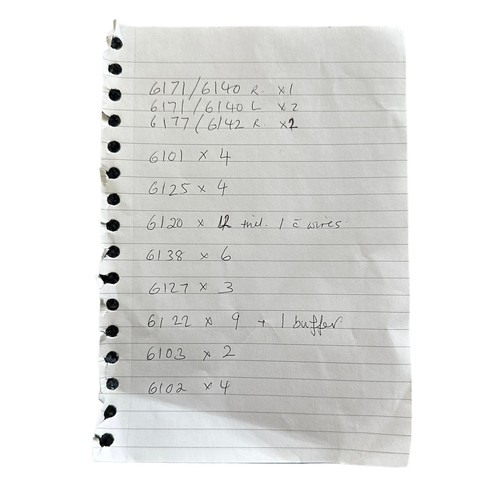 6171/6140 R. x1
6171/6140 L x2
6177/6142 R. x2
6101 x 4
6125 x 4
6120 x 12 incl. 1 c̄ wires.
6138 x 6
6127 x 3
6122 x 9 + 1 buffer
6103 x 2
6102 x 4